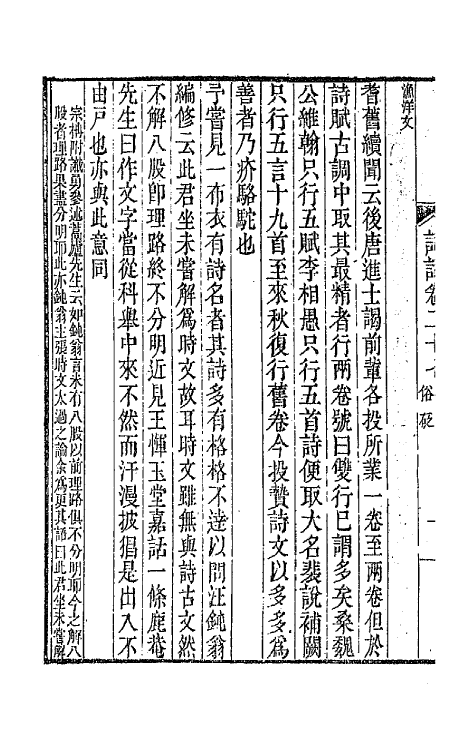 漁洋文
詩話卷二十七 俗砭 一
耆舊續聞云後唐進士謁前輩各投所業一卷至兩卷但於
詩賦古調中取其最精者行兩卷號曰雙行已謂多矣桑魏
公維翰只行五賦李相愚只行五首詩便取大名裴說補闕
只行五言十九首至來秋復行舊卷今投贄詩文以多多為
善者乃疥駱駝也
予嘗見一布衣有詩名者其詩多有格格不逹以問汪鈍翁
編修云此君坐未嘗解為時文故耳時文雖無與詩古文然
不解八股卽理路終不分明近見王惲玉堂嘉話一條鹿菴
先生曰作文字當從科舉中來不然而汗漫披猖是出入不
由戸也亦與此意同
宗柟附識舅參述蒿廬先生云如鈍翁言未有八股以前理路俱不分明耶今之解八
股者理路果盡分明耶此亦鈍翁主張時文太過之論余為更其語曰此君坐未嘗解